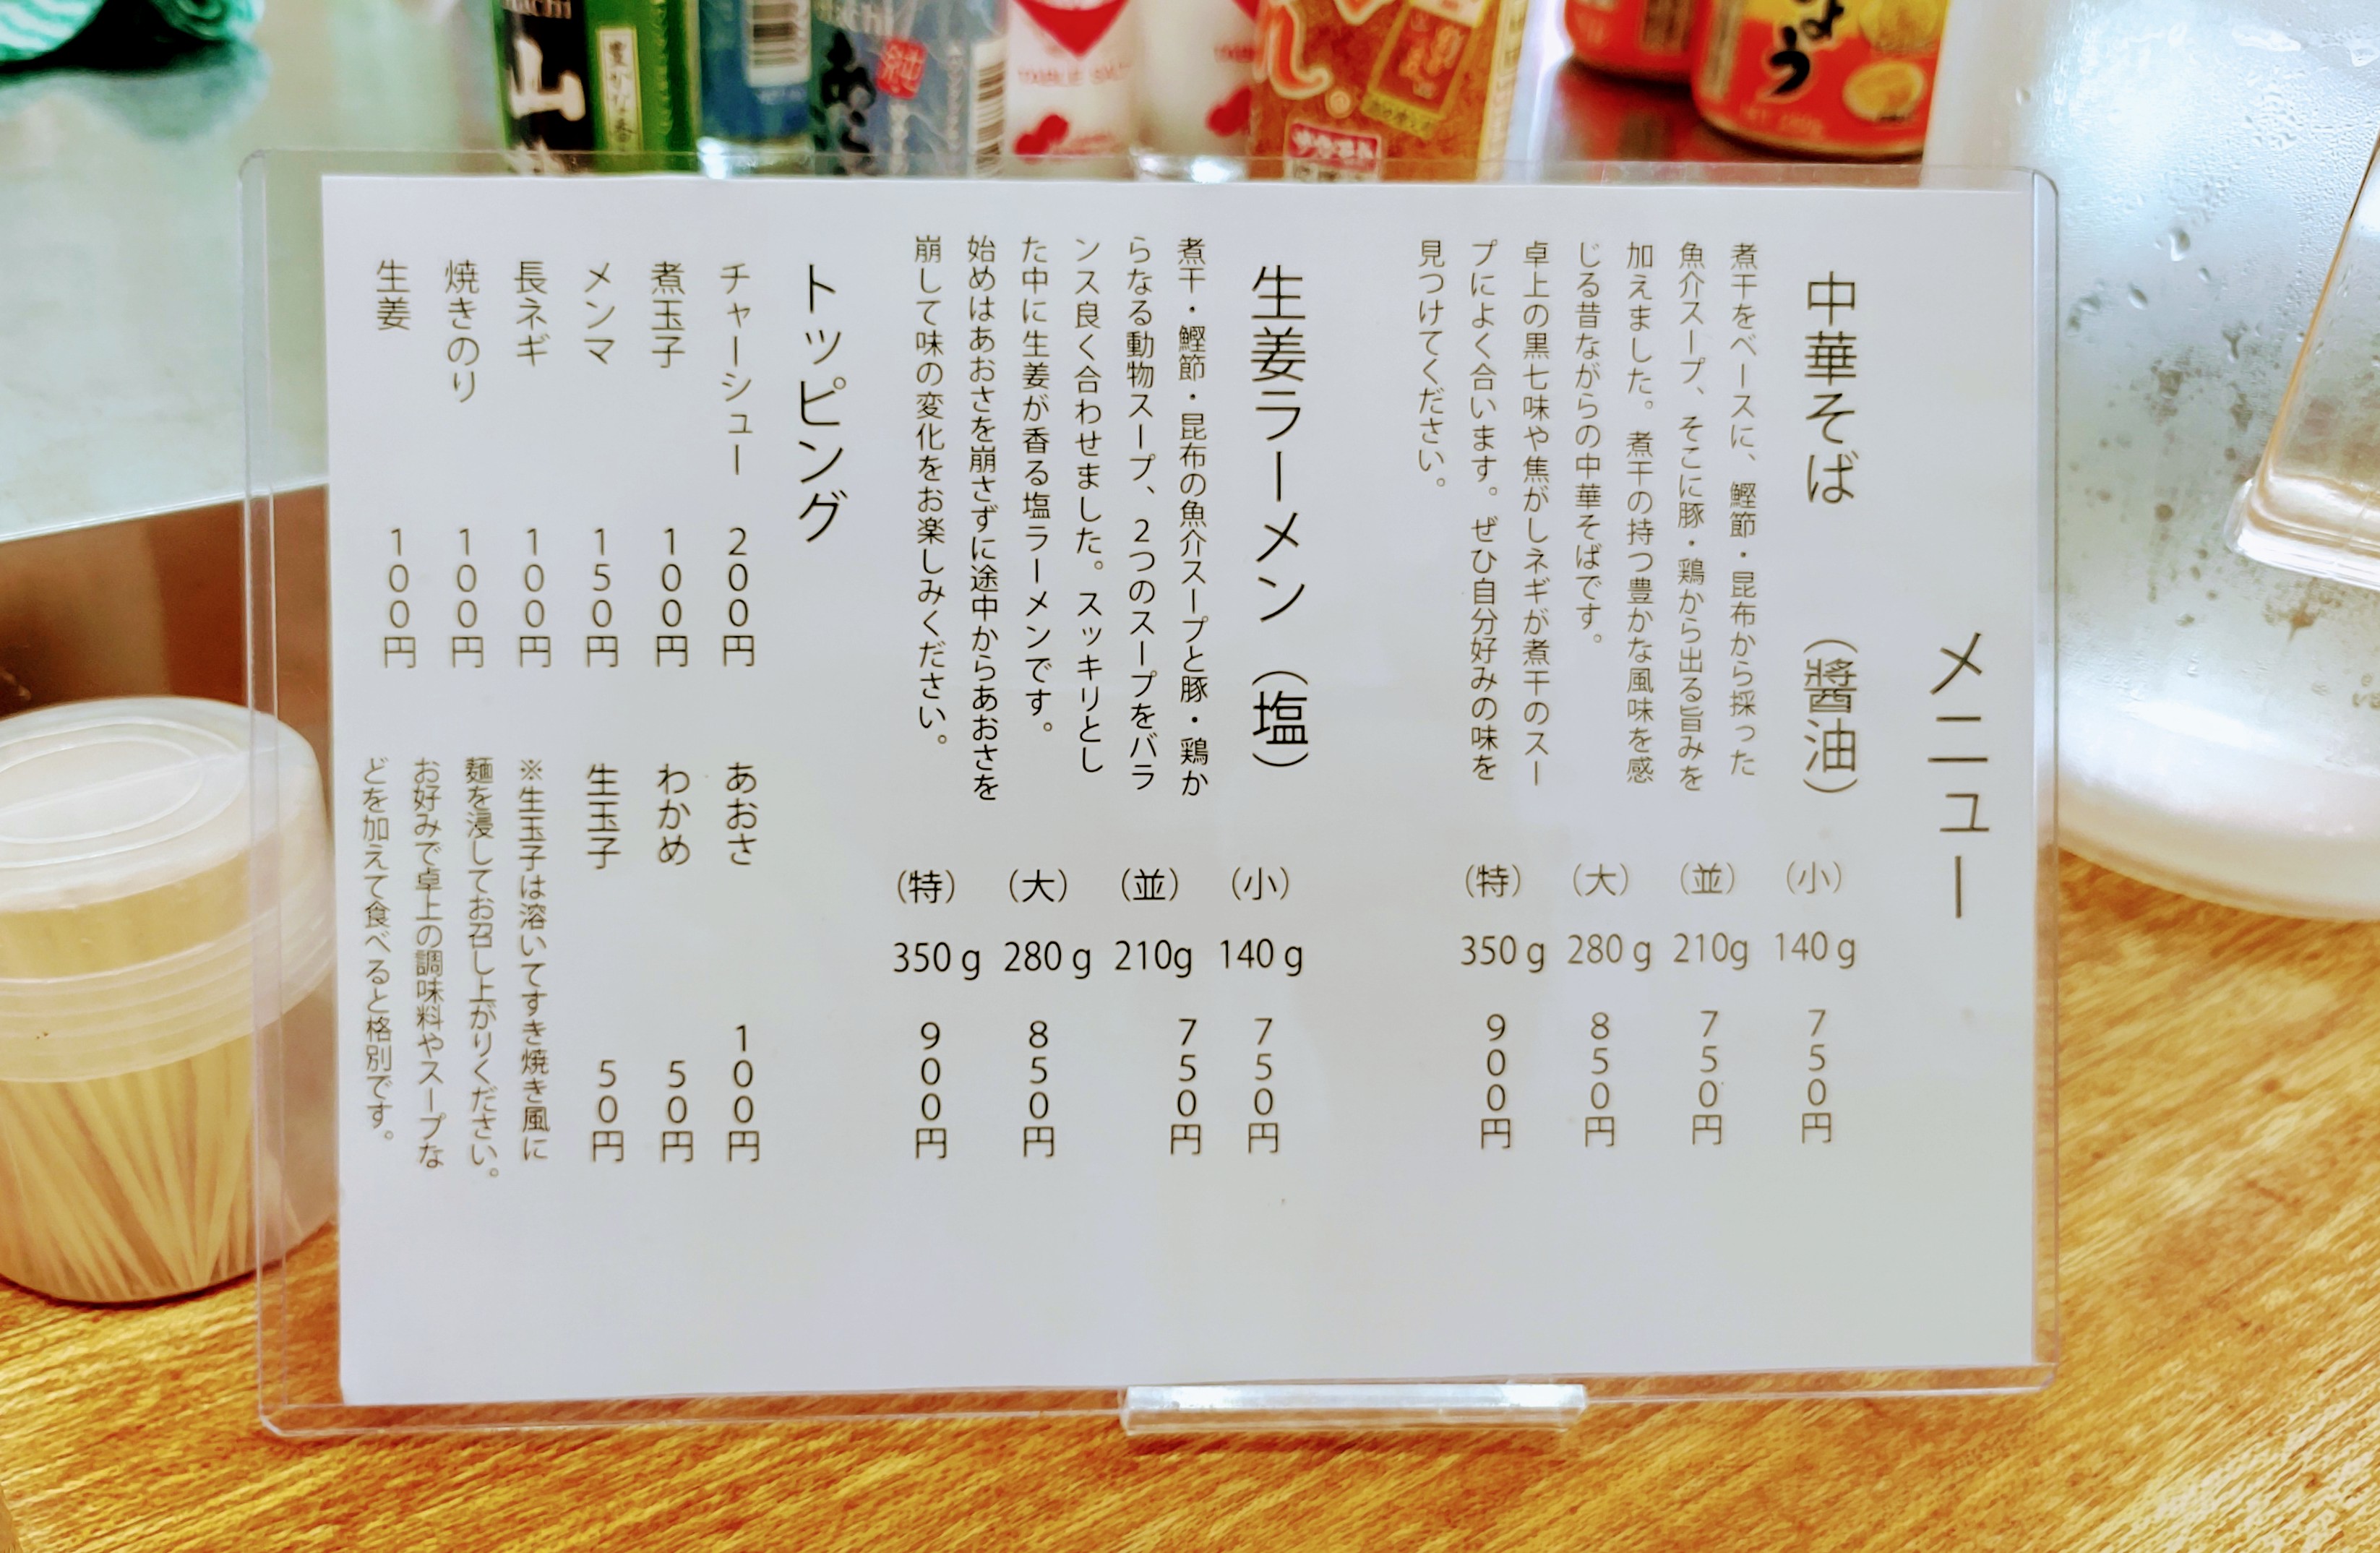 メニュー
中華そば （醤油）
煮干をベースに、鰹節・昆布から採った
魚介スープ、そこに豚・鶏から出る旨みを
加えました。煮干の持つ豊かな風味を感
じる昔ながらの中華そばです。
卓上の黒七味や焦がしネギが煮干のスー
プによく合います。ぜひ自分好みの味を
見つけてください。
（小） 140g 750円
（並） 210g 750円
（大） 280g 850円
（特） 350g 900円
生姜ラーメン（塩）
煮干・鰹節・昆布の魚介スープと豚・鶏か
らなる動物スープ、2つのスープをバラ
ンス良く合わせました。スッキリとし
た中に生姜が香る塩ラーメンです。
始めはあおさを崩さずに途中からあおさを
崩して味の変化をお楽しみください。
（小） 140g 750円
（並） 210g 750円
（大） 280g 850円
（特） 350g 900円
トッピング
チャーシュー 200円
煮玉子 100円
メンマ 150円
長ネギ 100円
焼きのり 100円
生姜 100円
あおさ 100円
わかめ 50円
生玉子 50円
※生玉子は溶いてすき焼き風に
麺を浸してお召し上がりください。
お好みで卓上の調味料やスープな
どを加えて食べると格別です。
山
豊かな香
純
TABLE SALT
れ
ょう